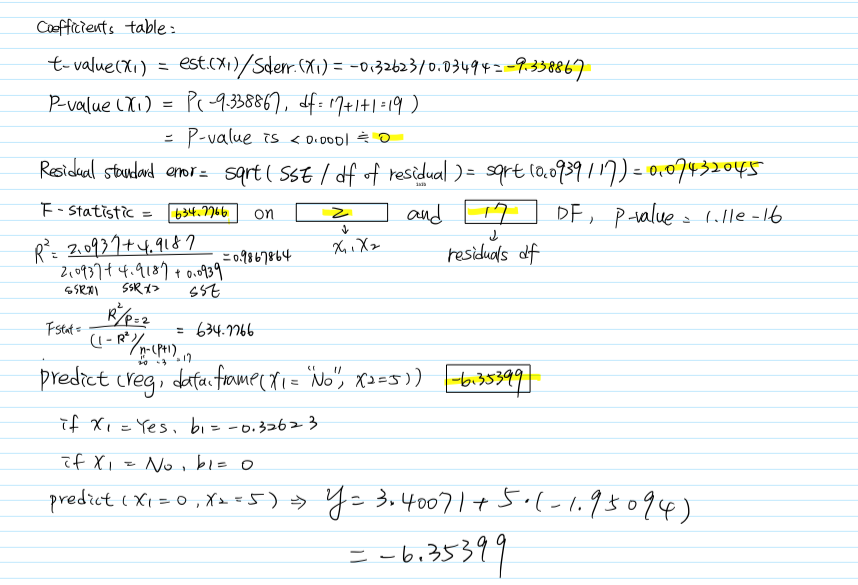 Coefficients table:
t-value(x1) = est.(x1)/Sderr.(x1) = -0.32623/0.03494 = -9.338867
P-value (x1) = P(-9.338867, df=17+1+1=19)
= P-value is < 0.0001 ≒ 0
Residual standard error = sqrt(SSE / df of residual) = sqrt(0.0939/17) = 0.07432045
F-statistic = 634.7766 on 2 and 17 DF, p-value = 1.11e-16
↓ x1, x2 ↓ residuals df
R² = 2.0937+4.9187 / 2.0937+4.9187+0.0939 = 0.9867864
SSRx1 SSRx2 SSE
Fstat = R²/p=2 / (1-R²)/n-(p+1) = 634.7766
20 -3 =17
predict(reg, data.frame(x1 = "No", x2=5)) -6.35399
if x1 = Yes, b1 = -0.32623
if x1 = No, b1 = 0
predict (x1=0, x2=5) ⇒ y = 3.40071 + 5·(-1.95094)
= -6.35399